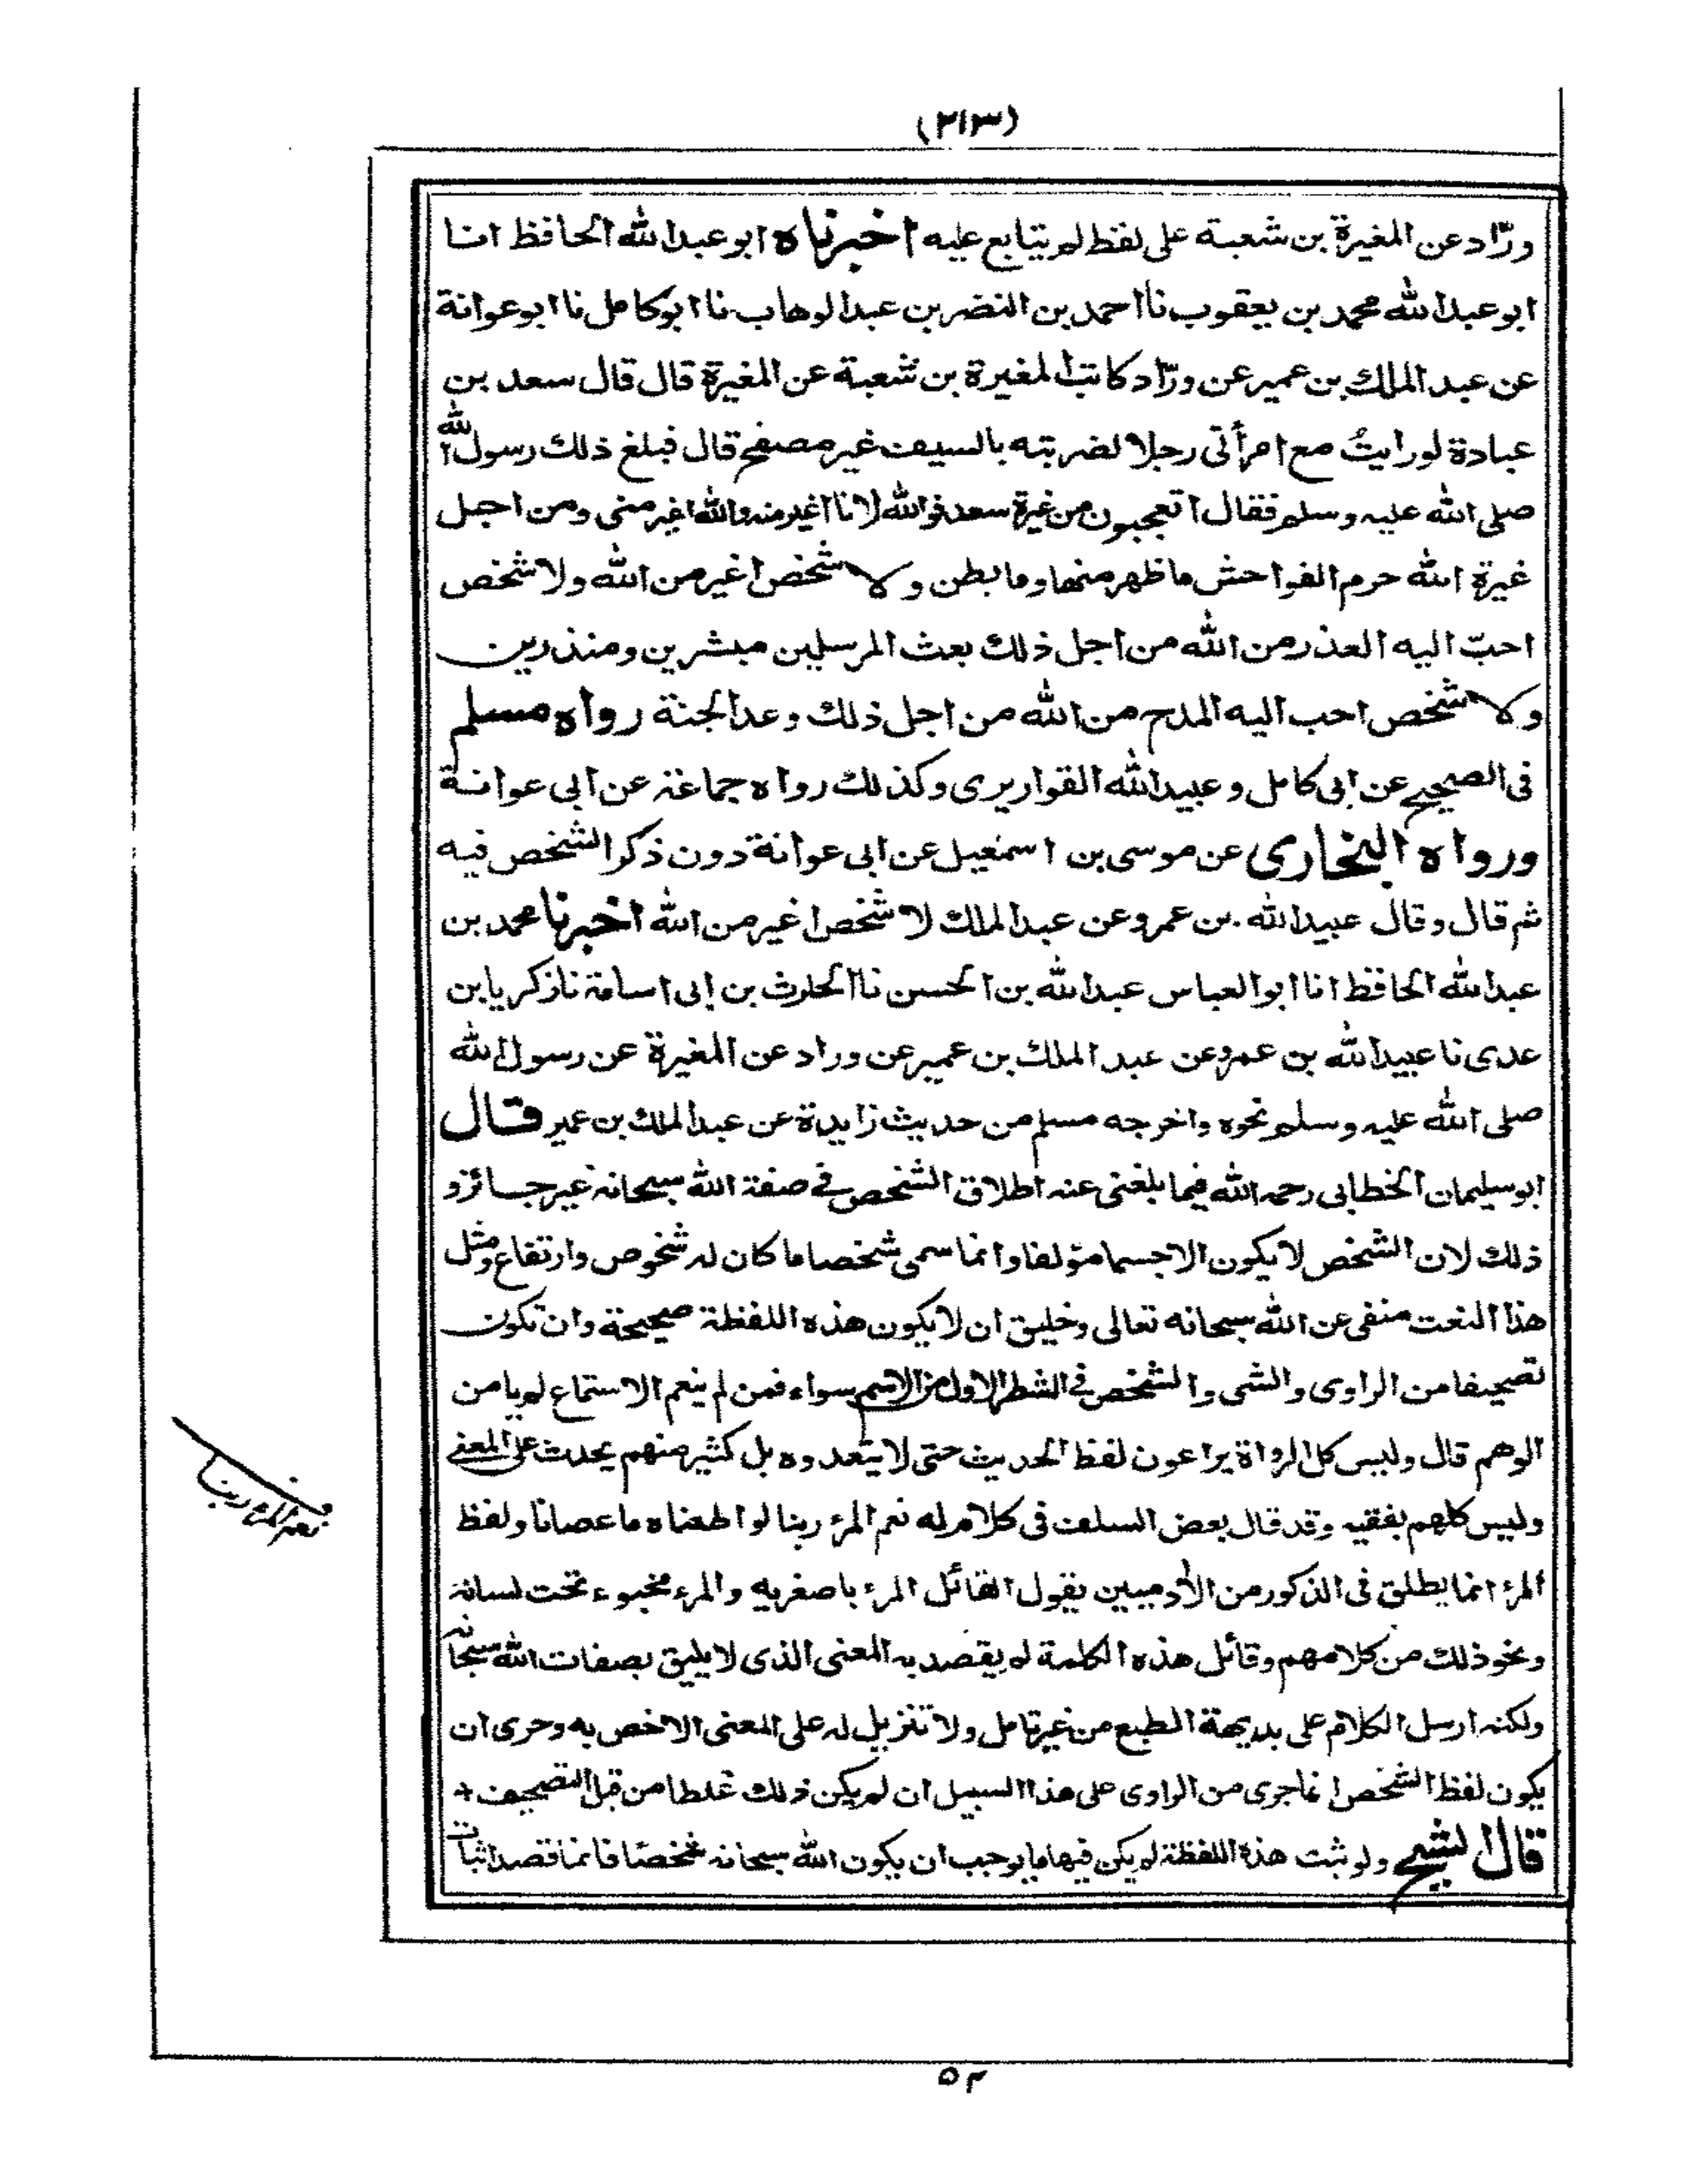 (٢١٣)
ورّاد عن المغيرة بن شعبة على لفظ لم يتابع عليه اخبرناه ابو عبد الله الحافظ انا
ابو عبد الله محمد بن يعقوب نا احمد بن النضر بن عبد الوهاب نا ابو كامل نا ابو عوانة
عن عبد الملك بن عمير عن ورّاد كاتب المغيرة بن شعبة عن المغيرة قال قال سعد بن
عبادة لو رايتُ مع امرأتى رجلا لضربته بالسيف غير مصفح قال فبلغ ذلك رسول الله
صلى الله عليه وسلم فقال اتعجبون من غيرة سعد فوالله لانا اغير منه والله اغير منى ومن اجل
غيرة الله حرم الفواحش ما ظهر منها وما بطن ولا شخص اغير من الله ولا شخص
احبّ اليه العذر من الله من اجل ذلك بعث المرسلين مبشرين ومنذرين
ولا شخص احب اليه المدح من الله من اجل ذلك وعد الجنة رواه مسلم
فى الصحيح عن ابى كامل وعبيد الله القواريرى وكذلك رواه جماعة عن ابى عوانة
ورواه البخارى عن موسى بن اسمٰعيل عن ابى عوانة دون ذكر الشخص فيه
ثم قال وقال عبيد الله بن عمرو عن عبد الملك لا شخص اغير من الله اخبرنا محمد بن
عبد الله الحافظ انا ابو العباس عبد الله بن الحسن نا الحارث بن ابى اسامة نا زكريا بن
عدى نا عبيد الله بن عمرو عن عبد الملك بن عمير عن وراد عن المغيرة عن رسول الله
صلى الله عليه وسلم نحوه واخرجه مسلم من حديث زايدة عن عبد الملك بن عمير قال
ابو سليمان الخطابى رحمه الله فيما بلغنى عنه اطلاق الشخص فى صفة الله سبحانه غير جائز و
ذلك لان الشخص لا يكون الا جسما مؤلفا وانما سمى شخصا ما كان له شخوص وارتفاع ومثل
هذا النعت منفى عن الله سبحانه تعالى وخليق ان لا يكون هذه اللفظة صحيحة وان تكون
تصحيفا من الراوى والشى والشخص فى الشطر الاول من الاسم سواء فمن لم ينعم الاستماع لم يامن
الوهم قال وليس كل الرواة يراعون لفظ الحديث حتى لا يتعدوه بل كثير منهم يحدث على المعنى
وليس كلهم بفقيه وقد قال بعض السلف فى كلام له نعم المرء ربنا لو اطعناه ما عصانا ولفظ
المرء انما يطلق فى الذكور من الأدميين يقول القائل المرء باصغريه والمرء مخبوء تحت لسانه
ونحو ذلك من كلامهم وقائل هذه الكلمة لم يقصد به المعنى الذى لا يليق بصفات الله سبحانه
ولكنه ارسل الكلام على بديهة الطبع من غير تامل ولا تنزيل له على المعنى الاخص به وحرى ان
يكون لفظ الشخص انما جرى من الراوى على هذا السبيل ان لم يكن ذلك غلطا من قبل التصحيف +
قال الشيخ ولو ثبت هذه اللفظة لم يكن فيها ما يوجب ان يكون الله سبحانه شخصًا فانما قصد اثبات
نعم المرء ربنا
٥٣